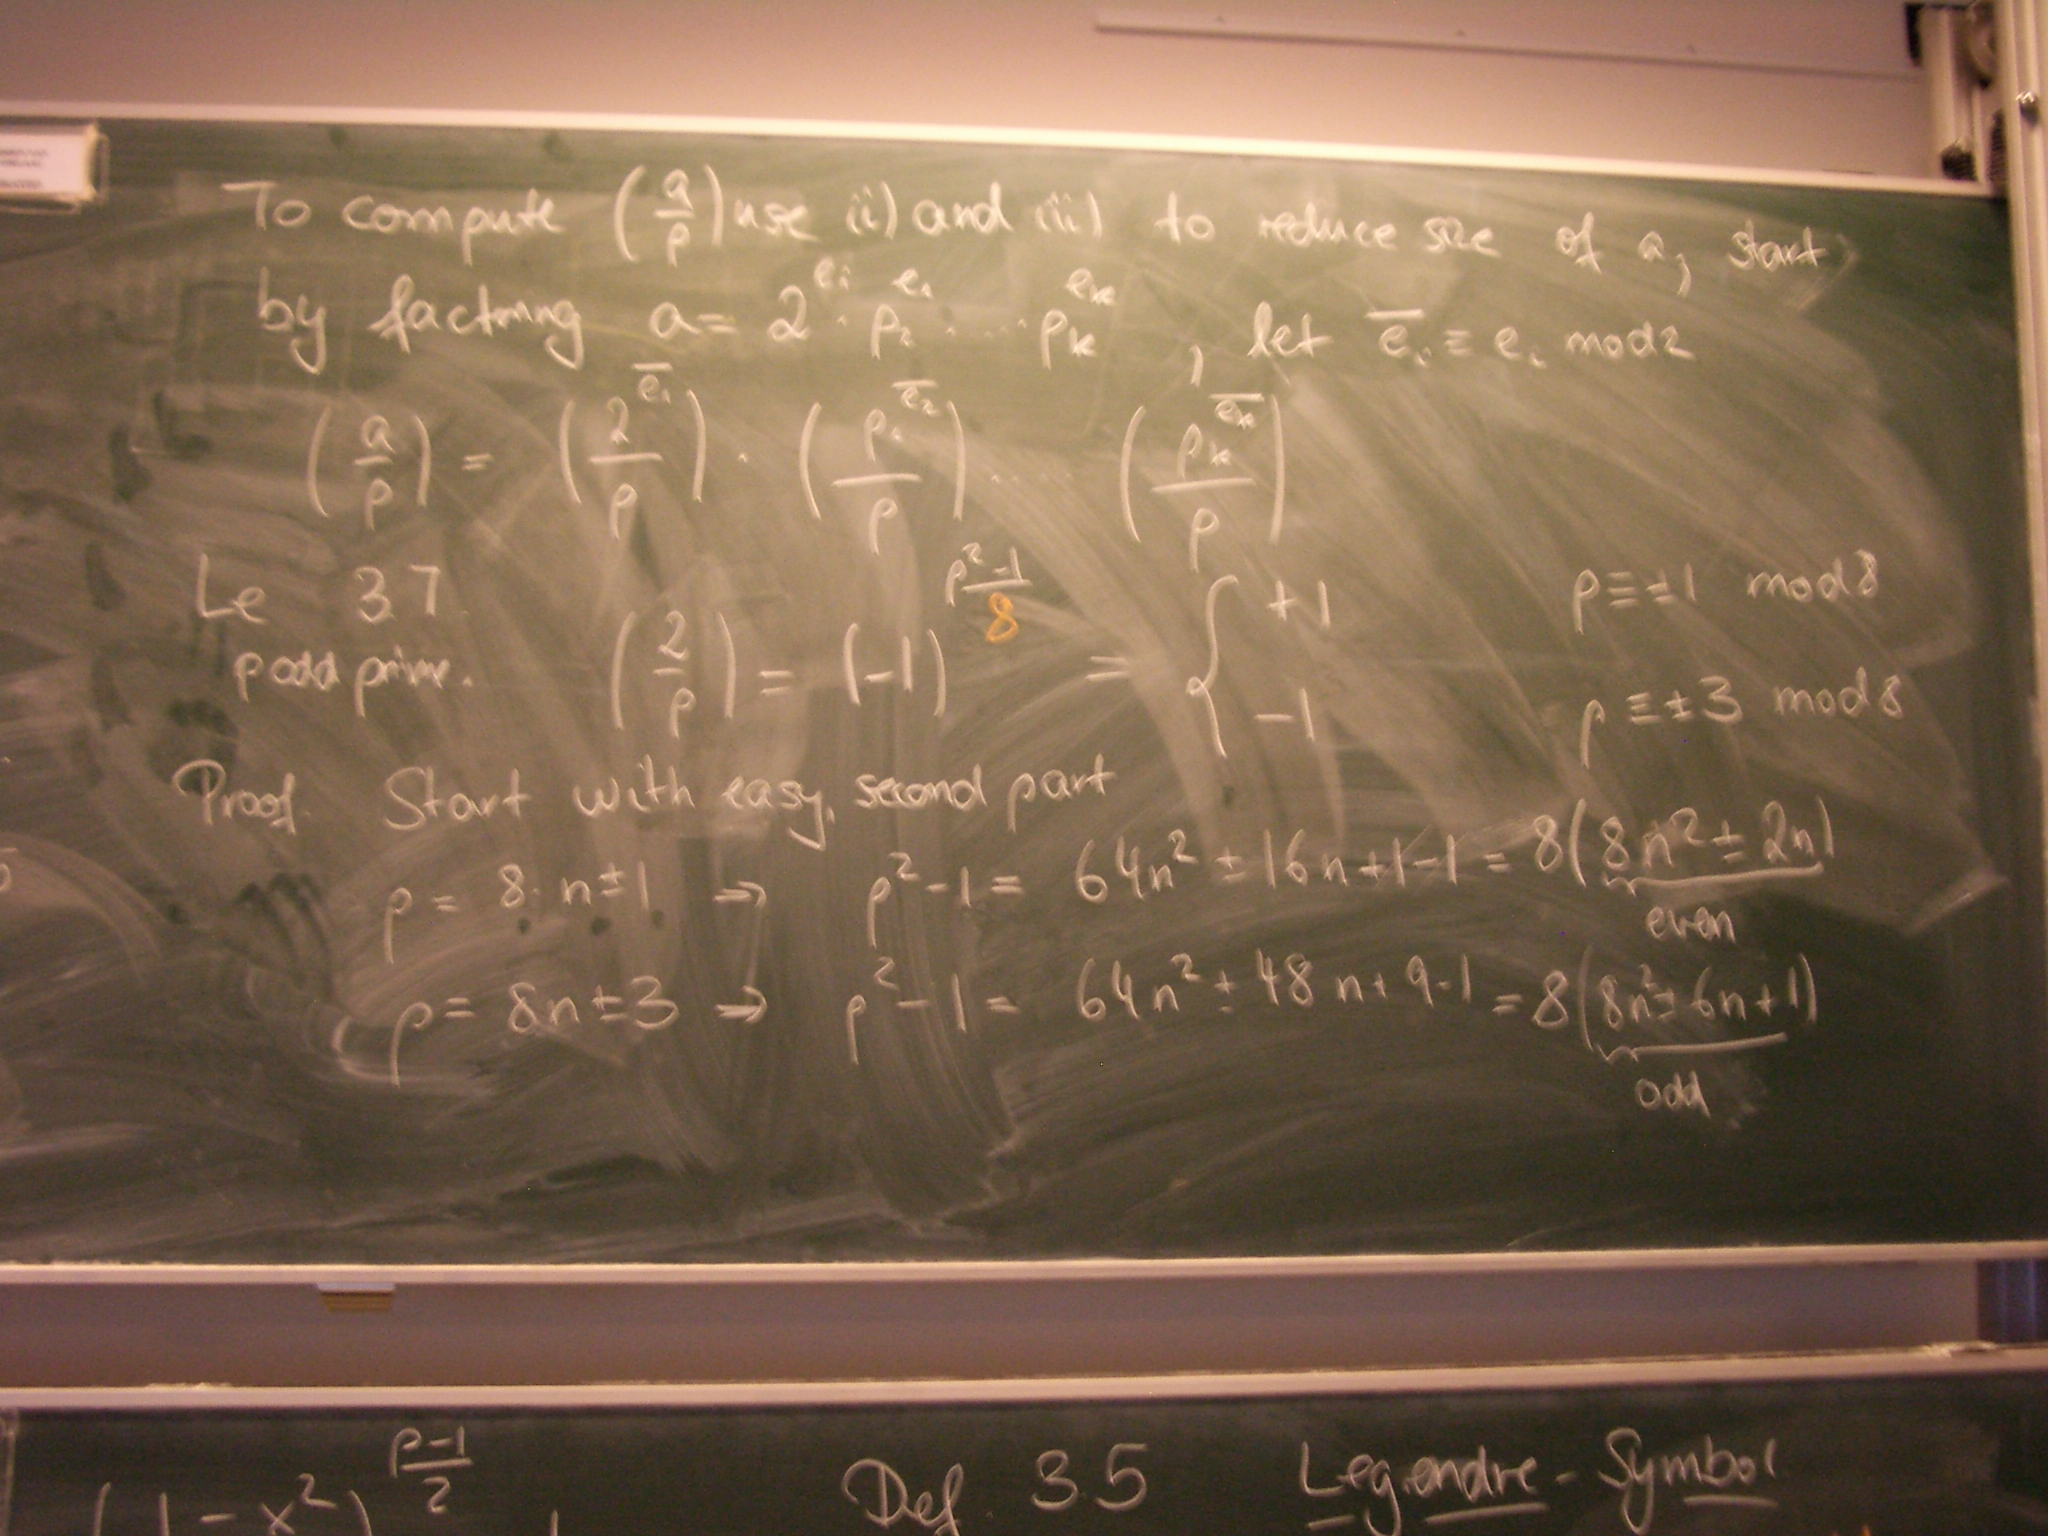 To compute (a/p) use (ii) and (iii) to reduce size of a, start
by factoring a = 2^{e_1} · p_2^{e_2} ..... p_k^{e_k}, let \overline{e_i} ≡ e_i mod 2
(a/p) = (2^{\overline{e_1}}/p) · (p_2^{\overline{e_2}}/p) ..... (p_k^{\overline{e_k}}/p)
Le 3.7.
p odd prime. (2/p) = (-1)^{(p^2-1)/8} = { +1 p ≡ ±1 mod 8
-1 p ≡ ±3 mod 8
Proof. Start with easy, second part
p = 8·n±1 ⇒ p²-1 = 64n² ± 16n+1-1 = 8(8n² ± 2n)
even
p = 8n±3 ⇒ p²-1 = 64n² ± 48n+9-1 = 8(8n² ± 6n+1)
odd
(1-x²)^{(p-1)/2}
Def. 3.5 Legendre-Symbol